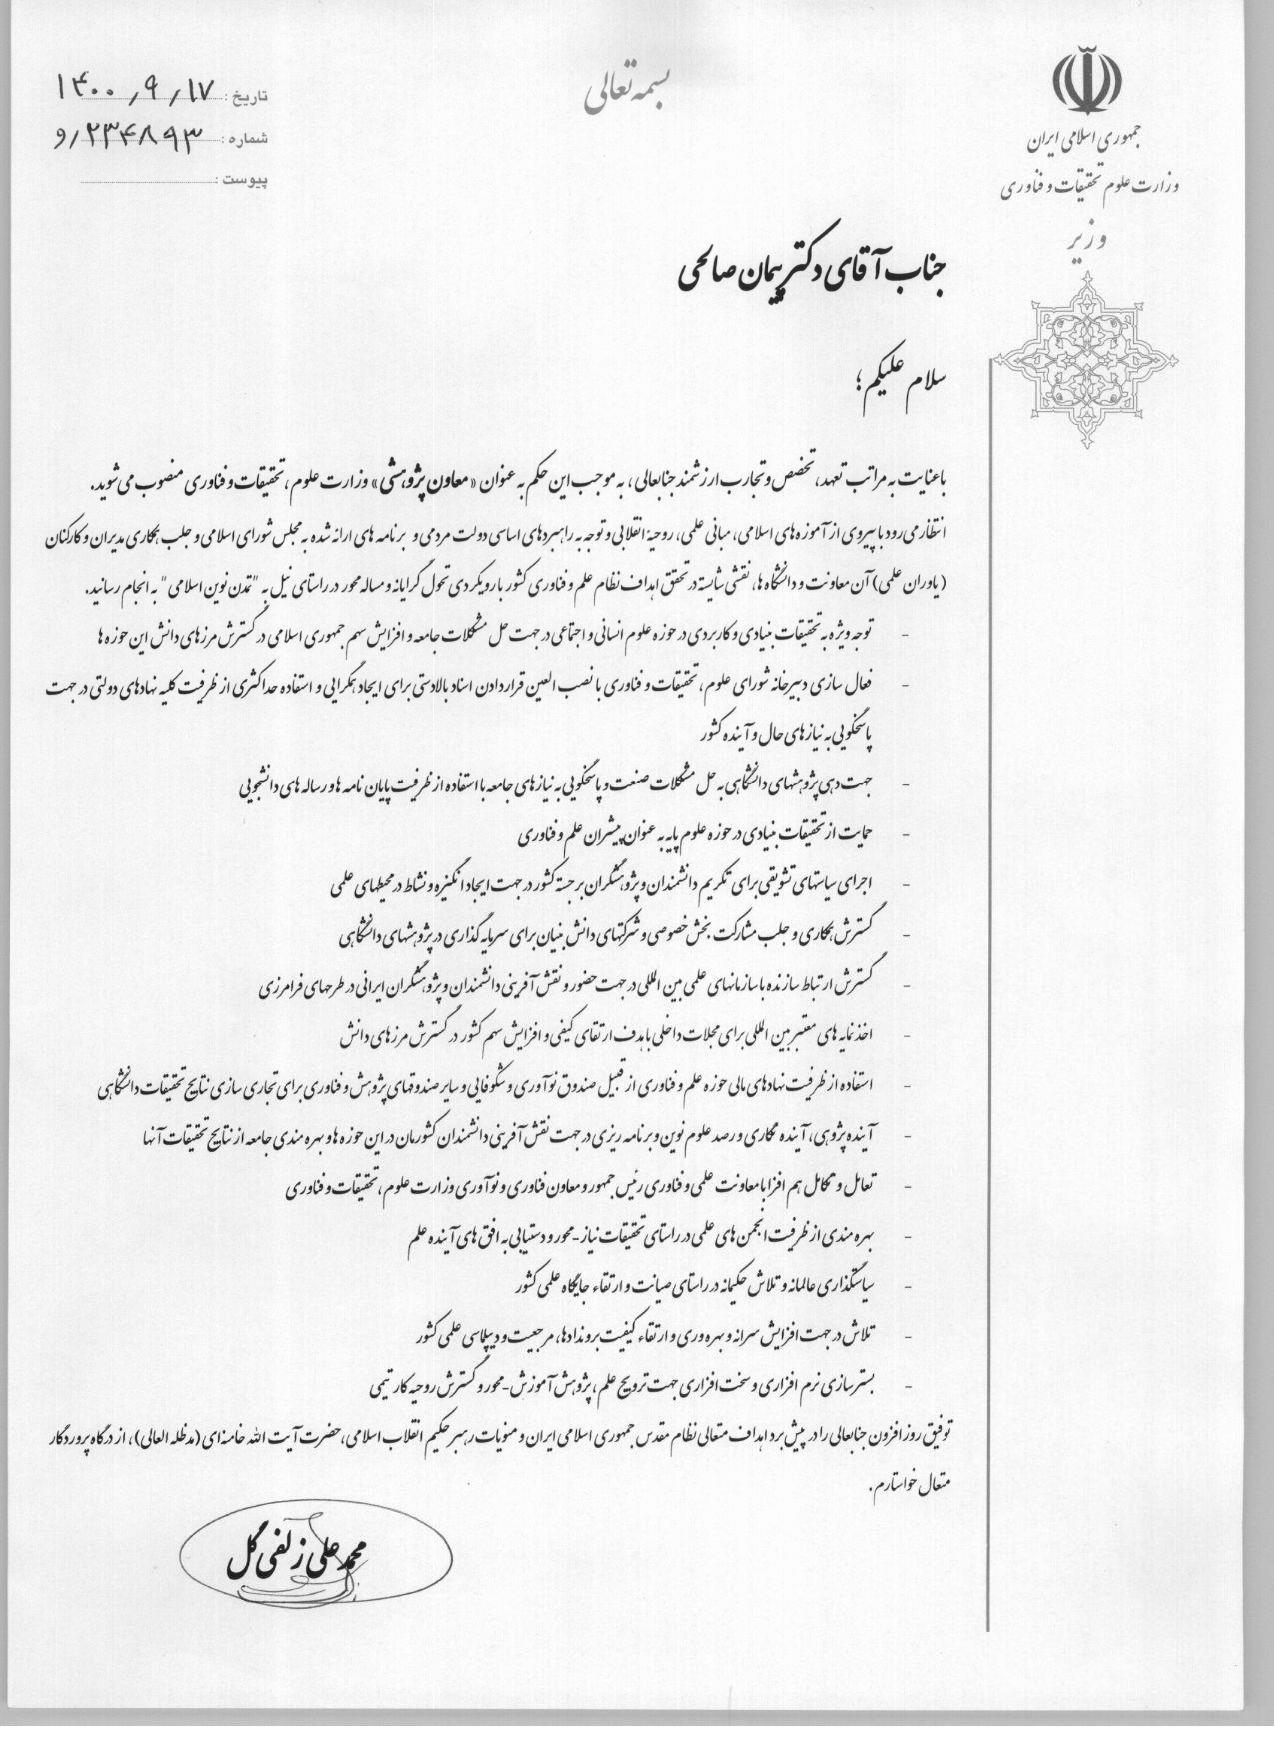 بسمه تعالی
جمهوری اسلامی ایران
وزارت علوم تحقیقات و فناوری
وزیر
تاریخ : ۱۴۰۰٫۹٫۱۷
شماره : ۲۳۴۸۹۳/و
پیوست :
جناب آقای دکتر پیمان صالحی
سلام علیکم ؛
با عنایت به مراتب تعهد، تخصص و تجارب ارزشمند جنابعالی ، به موجب این حکم به عنوان «معاون پژوهشی» وزارت علوم ، تحقیقات و فناوری منصوب می شوید.
انتظار می رود با پیروی از آموزه های اسلامی، مبانی علمی، روحیۀ انقلابی و توجه به راهبردهای اساسی دولت مردمی و برنامه های ارائه شده به مجلس شورای اسلامی و جلب همکاری مدیران و کارکنان
(یاوران علمی) آن معاونت و دانشگاه ها، نقشی شایسته در تحقق اهداف نظام علم و فناوری کشور با رویکردی تحول گرایانه و مساله محور در راستای نیل به "تمدن نوین اسلامی" به انجام رسانید.
- توجه ویژه به تحقیقات بنیادی و کاربردی در حوزه علوم انسانی و اجتماعی در جهت حل مشکلات جامعه و افزایش سهم جمهوری اسلامی در گسترش مرزهای دانش این حوزه ها
- فعال سازی دبیرخانه شورای علوم، تحقیقات و فناوری با نصب العین قرار دادن اسناد بالادستی برای ایجاد همگرایی و استفاده حداکثری از ظرفیت کلیه نهادهای دولتی در جهت
پاسخگویی به نیازهای حال و آینده کشور
- جهت دهی پژوهشهای دانشگاهی به حل مشکلات صنعت و پاسخگویی به نیازهای جامعه با استفاده از ظرفیت پایان نامه ها و رساله های دانشجویی
- حمایت از تحقیقات بنیادی در حوزه علوم پایه به عنوان پیشران علم و فناوری
- اجرای سیاستهای تشویقی برای تکریم دانشمندان و پژوهشگران برجسته کشور در جهت ایجاد انگیزه و نشاط در محیطهای علمی
- گسترش همکاری و جلب مشارکت بخش خصوصی و شرکتهای دانش بنیان برای سرمایه گذاری در پژوهشهای دانشگاهی
- گسترش ارتباط سازنده با سازمانهای علمی بین المللی در جهت حضور و نقش آفرینی دانشمندان و پژوهشگران ایرانی در طرحهای فرامرزی
- اخذ نمایه های معتبر بین المللی برای مجلات داخلی با هدف ارتقای کیفی و افزایش سهم کشور در گسترش مرزهای دانش
- استفاده از ظرفیت نهادهای مالی حوزه علم و فناوری از قبیل صندوق نوآوری و شکوفایی و سایر صندوقهای پژوهش و فناوری برای تجاری سازی نتایج تحقیقات دانشگاهی
- آینده پژوهی، آینده نگاری و رصد علوم نوین و برنامه ریزی در جهت نقش آفرینی دانشمندان کشورمان در این حوزه ها و بهره مندی جامعه از نتایج تحقیقات آنها
- تعامل و تکامل هم افزا با معاونت علمی و فناوری رئیس جمهور و معاون فناوری و نوآوری وزارت علوم ، تحقیقات و فناوری
- بهره مندی از ظرفیت انجمن های علمی در راستای تحقیقات نیاز-محور و دستیابی به افق های آینده علم
- سیاستگذاری عالمانه و تلاش حکیمانه در راستای صیانت و ارتقاء جایگاه علمی کشور
- تلاش در جهت افزایش سرانه و بهره وری و ارتقاء کیفیت بروندادها، مرجعیت و دیپلماسی علمی کشور
- بستر سازی نرم افزاری و سخت افزاری جهت ترویج علم، پژوهش آموزش-محور و گسترش روحیه کار تیمی
توفیق روز افزون جنابعالی را در پیش برد اهداف متعالی نظام مقدس جمهوری اسلامی ایران و منویات رهبر حکیم انقلاب اسلامی، حضرت آیت الله خامنه ای (مدظله العالی)، از درگاه پروردگار
متعال خواستارم.
محمد علی زلفی گل